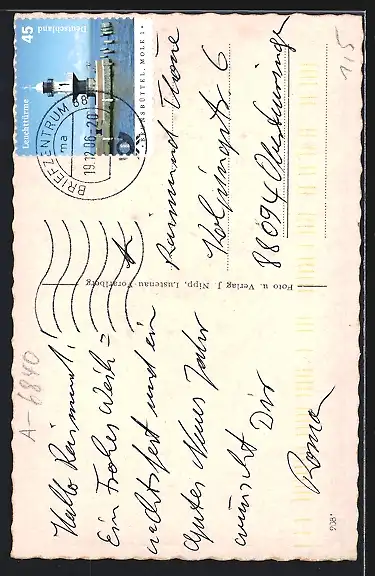 Hallo Raimund!
Ein Frohes Weih=
nachtsfest und ein
Gutes Neues Jahr
wünscht Dir
Foto u. Verlag J. Nipp, Lustenau-Vorarlberg
Leuchttürme
Deutschland
45
BRUNSBÜTTEL, MOLE 1
BRIEFZENTRUM 88
19.12.06-20
ma
Raimund
Kolpingstr. 6
88094 Oberteuringen
A-6840
1,5